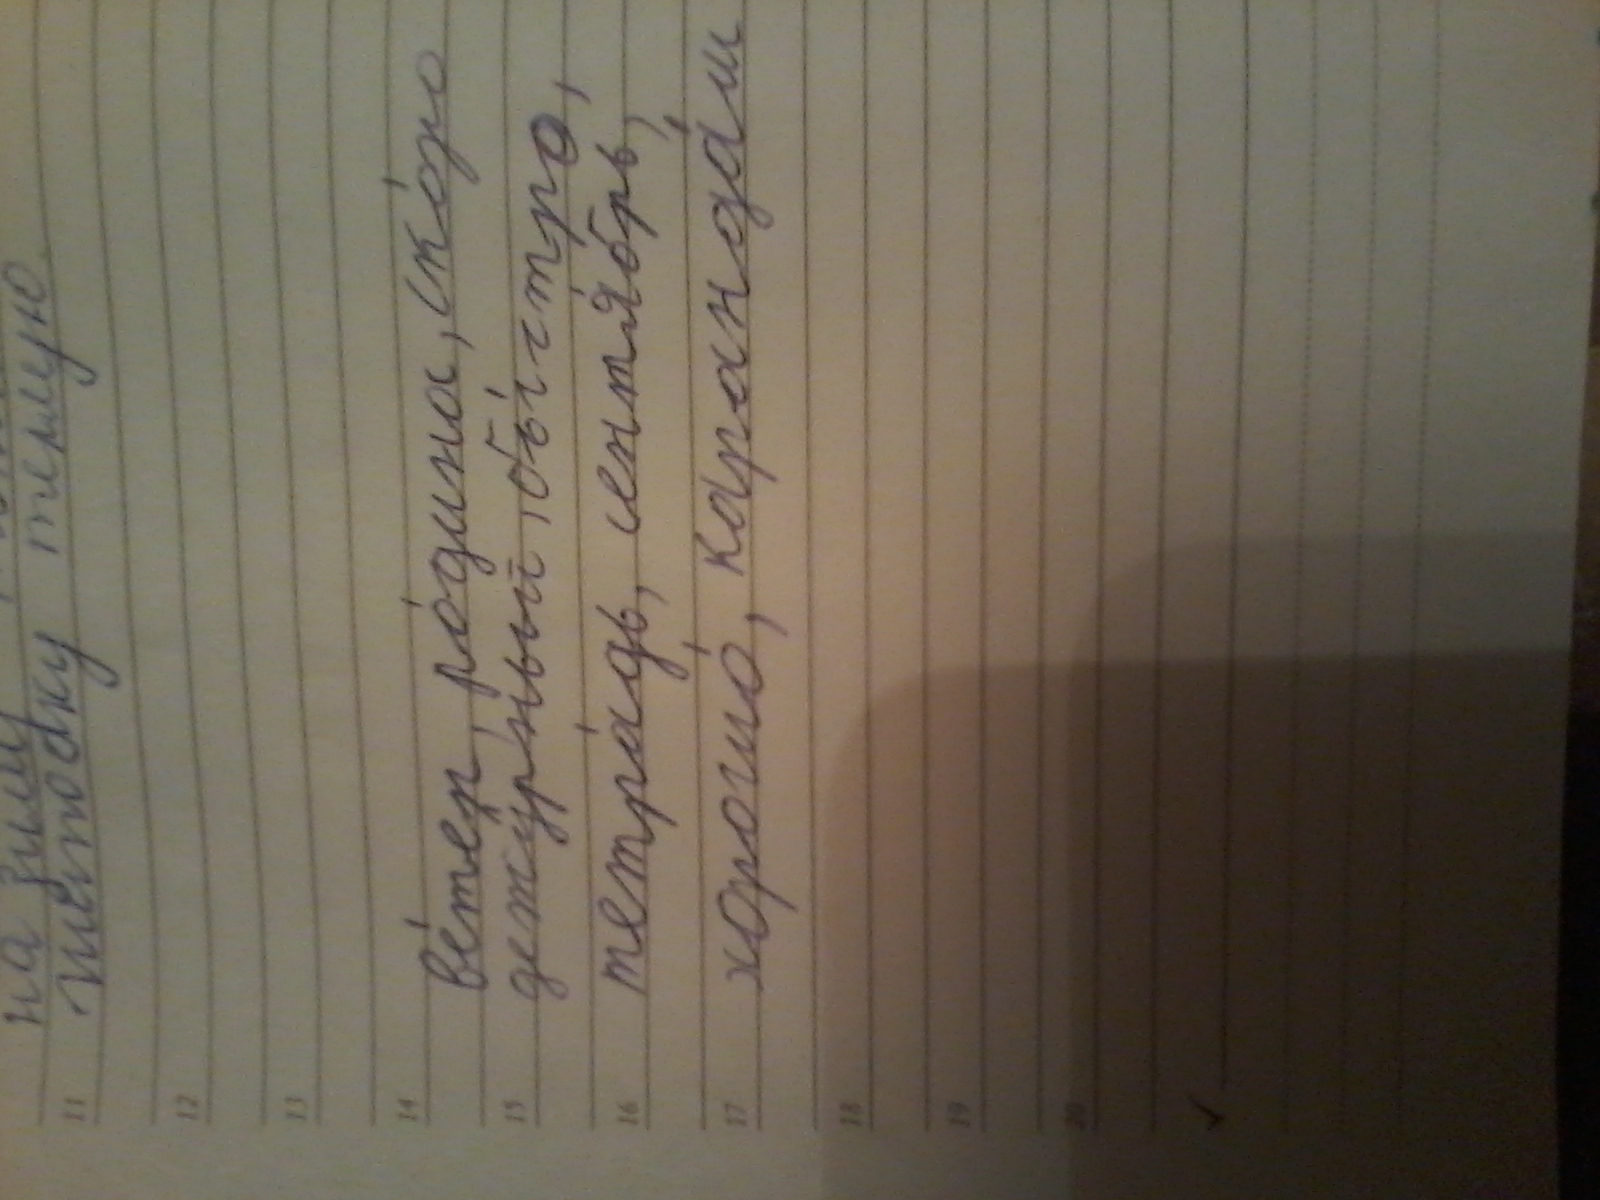 на зиму
11 шёпотку темную.
12
13
14 ве́тер, ро́дина, ско́ро
15 дежу́рный, бы́стро,
16 тетра́дь, сентя́брь,
17 хорошо́, карандаш
18
19
20